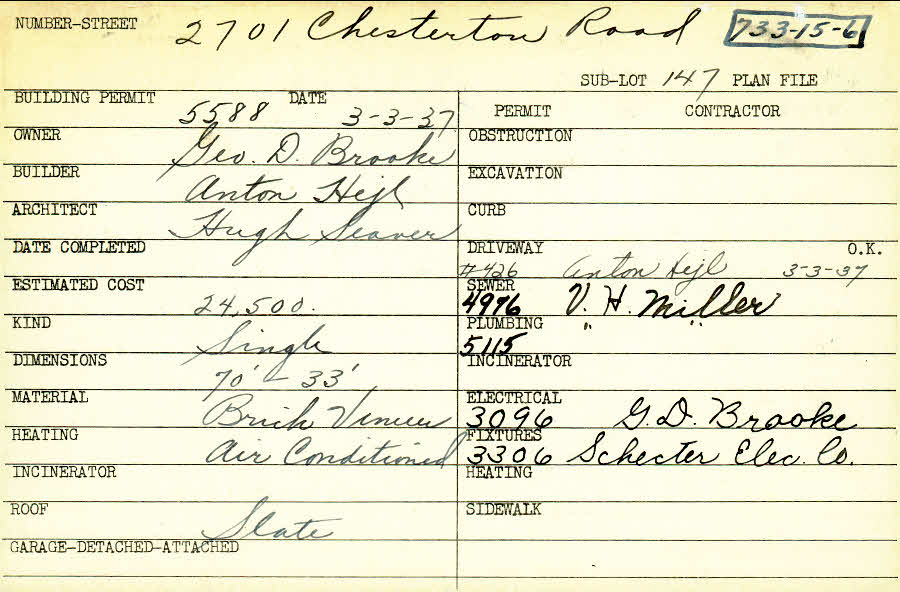 NUMBER-STREET 2701 Chesterton Road 733-15-6
SUB-LOT 147 PLAN FILE
BUILDING PERMIT 5588 DATE 3-3-37
OWNER Geo. D. Brooke
BUILDER Anton Hejl
ARCHITECT Hugh Seaver
DATE COMPLETED
ESTIMATED COST 24,500.
KIND Single
DIMENSIONS 70' - 33'
MATERIAL Brick Veneer
HEATING Air Conditioned
INCINERATOR
ROOF Slate
GARAGE-DETACHED-ATTACHED
PERMIT CONTRACTOR
OBSTRUCTION
EXCAVATION
CURB
DRIVEWAY O.K.
#426 Anton Hejl 3-3-37
SEWER
4976 V. H. Miller
PLUMBING " "
5115
INCINERATOR
ELECTRICAL
3096 G.D. Brooke
FIXTURES
3306 Schecter Elec. Co.
HEATING
SIDEWALK